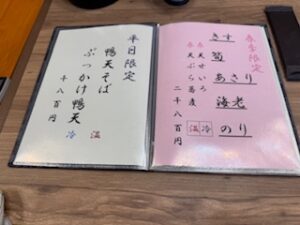 春季限定
きす
筍
あさり
海老
のり
春天せいろ
春天ぷら蕎麦
二千八百円
温 冷
平日限定
鴨天そば
ぶっかけ鴨天
千八百円
冷 温